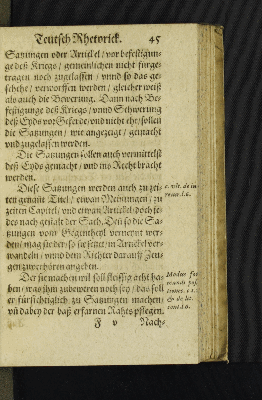 Teutsch Rhetorick. 45
Satzungen oder Artickel / vor befestigun-
ge deß Kriegs / gemeinlichen nicht fürge-
tragen noch zugelassen / vnnd so das ge-
schehe / verworffen werden / gleicher weiß
als auch die Bewerung. Dann nach Be-
festigunge deß Kriegs / vnnd Schwerung
deß Eyds vor Geferde / vnd nicht ehe / sollen
die Satzungen / wie angezeigt / gemacht
vnd zugelassen werden.
Die Satzungen sollen auch vermittelst
deß Eyds gemacht / vnd ins Recht bracht
werden.
Diese Satzungen werden auch zu zei-
ten genant Titel / etwan Meinungen / zu
zeiten Capitel / vnd etwan Artickel / doch je-
des nach qualitet der Sach. Den so die Sa-
tzungen vom Gegentheyl vernennt wer-
den / mag sie der / so sie setzet / in Artickel ver-
wandeln / vnnd dem Richter darauff Zeu-
gen zuverhören angeben.
Modus fa
ciendi po
Der sie machen wil soll fleissig acht ha-
ben / was jhm zubeweren noch sey / das soll
er fürsichtiglich zu Satzungen machen /
vñ dabey der baß erfarnen Rahts pflegen.
F v Nach-